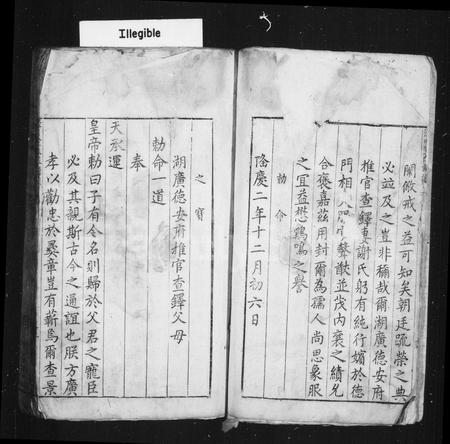 Illegible
關儆戒之益可知矣朝廷疏榮之典
必竝及之豈非稱哉爾湖廣德安府
推官查鐸妻謝氏躬有純行嬪於德
門相 聲猷並茂内襄之績允
合褒嘉茲用封爾為孺人尚思象服
之宜益懋鷄鳴之譽
勅命
隆慶二年十二月初六日
之寶
湖廣德安府推官查鐸父母
勅命一道
奉
天承運
皇帝勅曰子有令名則歸於父君之寵臣
必及其親斯古今之通誼也朕方廣
孝以勸忠於彝章豈有蘄焉爾查景